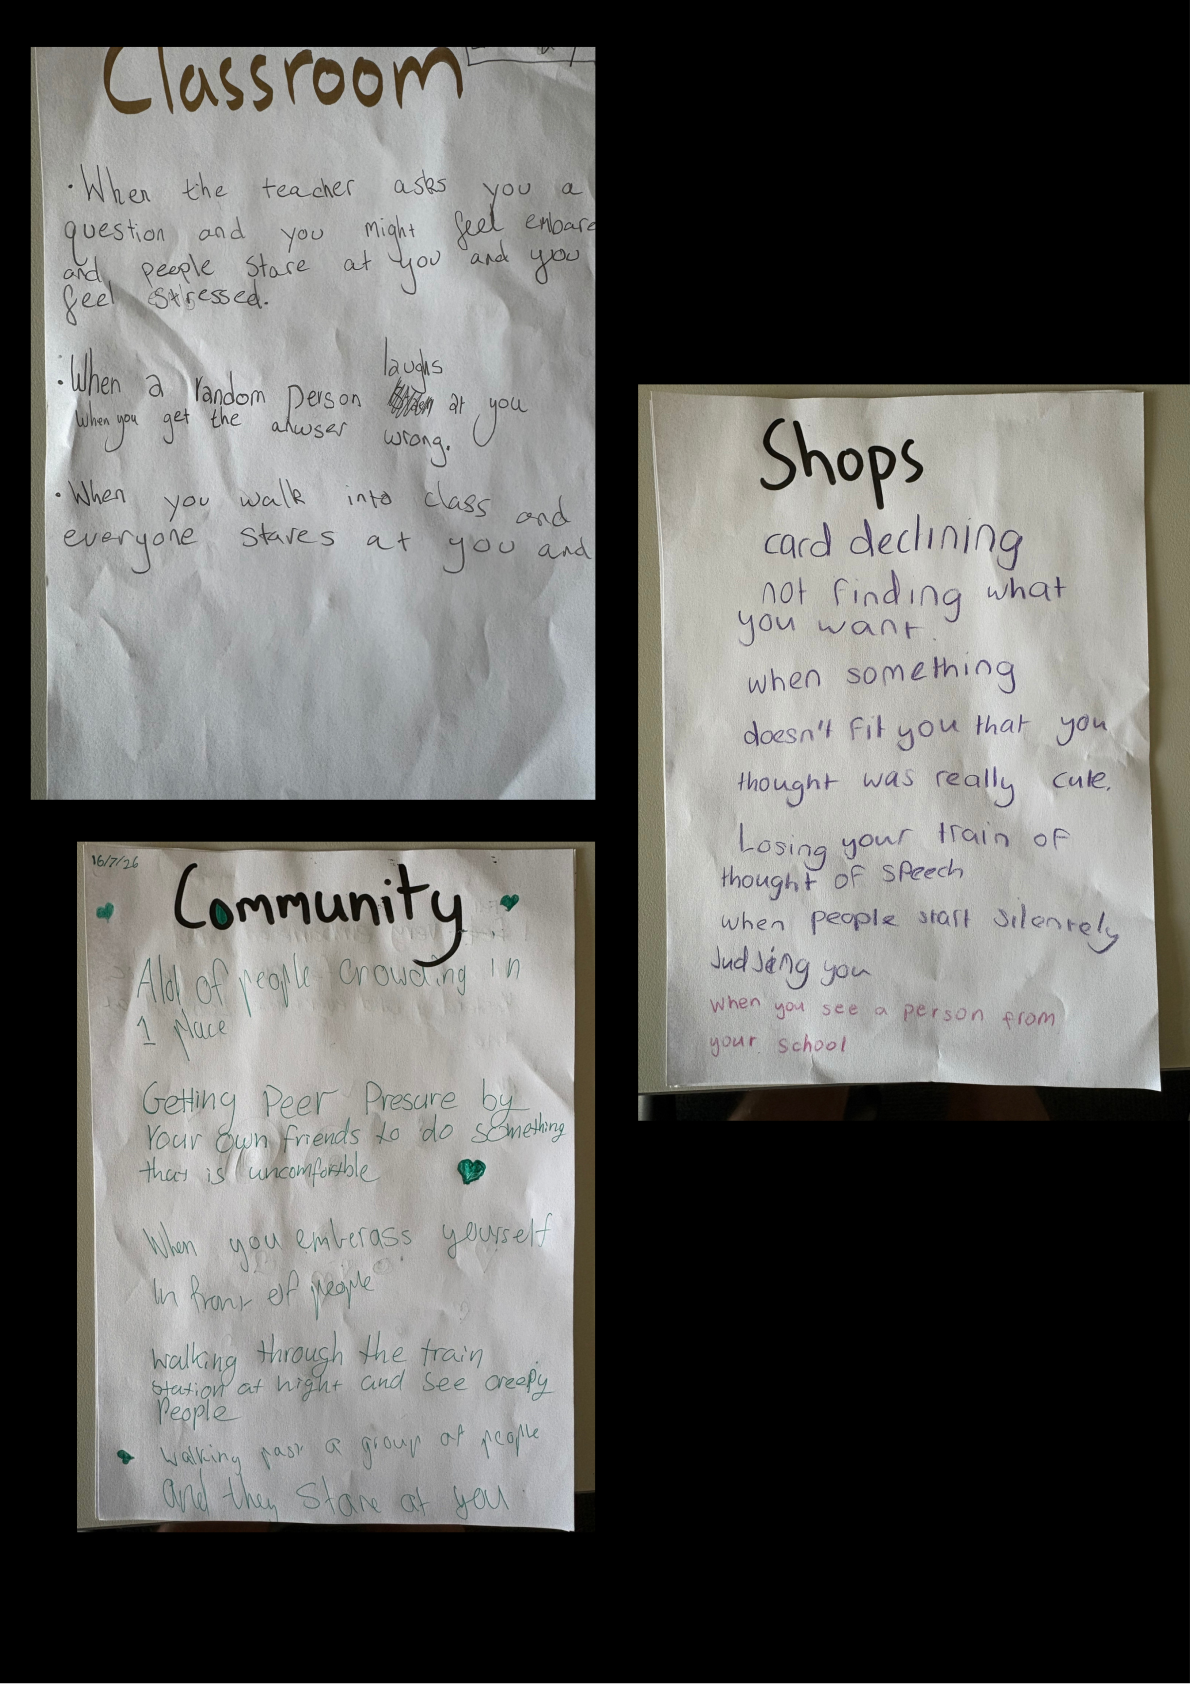 Classroom
• When the teacher asks you a
question and you might feel embare
and people stare at you and you
feel stressed.
• When a random person laughs at you
When you get the anwser wrong.
• When you walk into class and
everyone stares at you and
16/7/26
Community
Alot of people crowding in
1 place
Getting Peer Presure by
Your own friends to do something
that is uncomfortble
When you emberass yourself
In front of people
walking through the train
station at night and see creepy
People
walking past a group of people
and they stare at you
Shops
card declining
not finding what
you want.
when something
doesn't fit you that you
thought was really cute.
Losing your train of
thought of speech
when people start silentely
Judging you
When you see a person from
your school